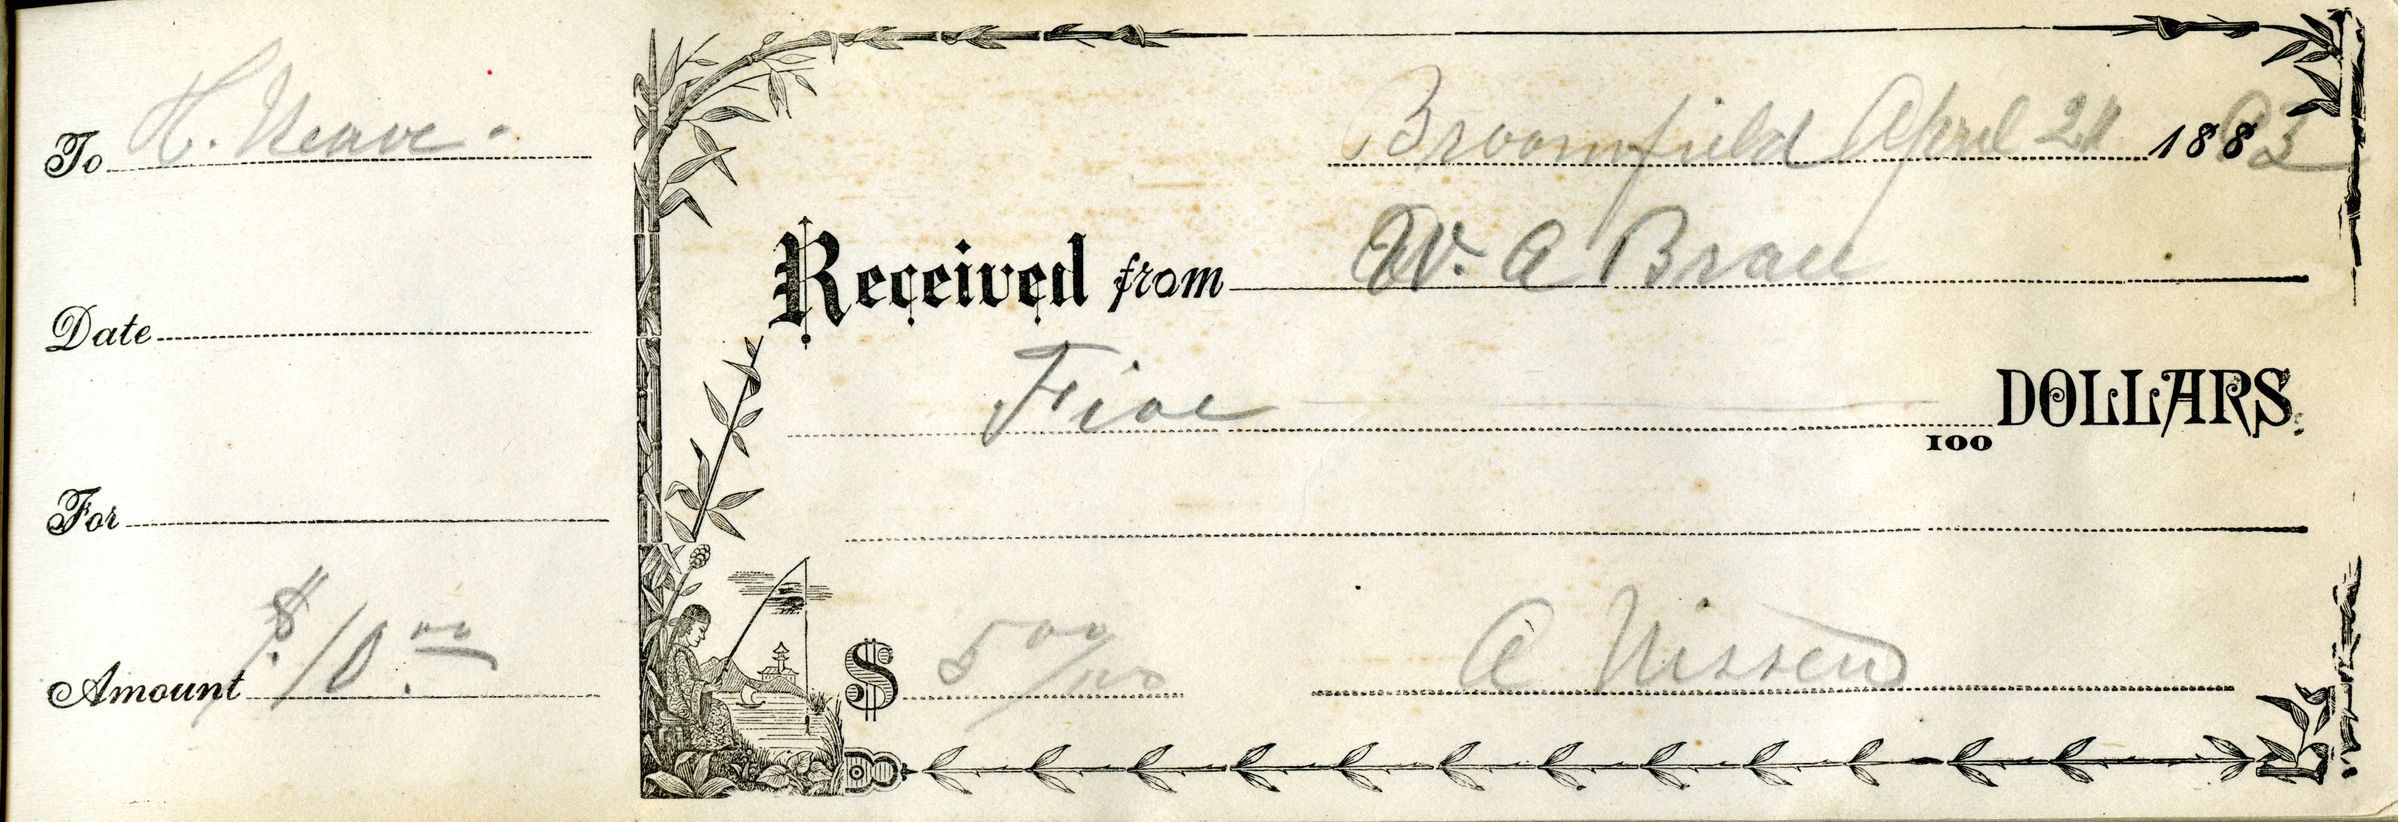 To H. Neave.
Date
For
Amount $10.00
Broomfield April 21 18893
Received from W. A Brau
Five
100 DOLLARS.
$ 5 00/100
A Nissen